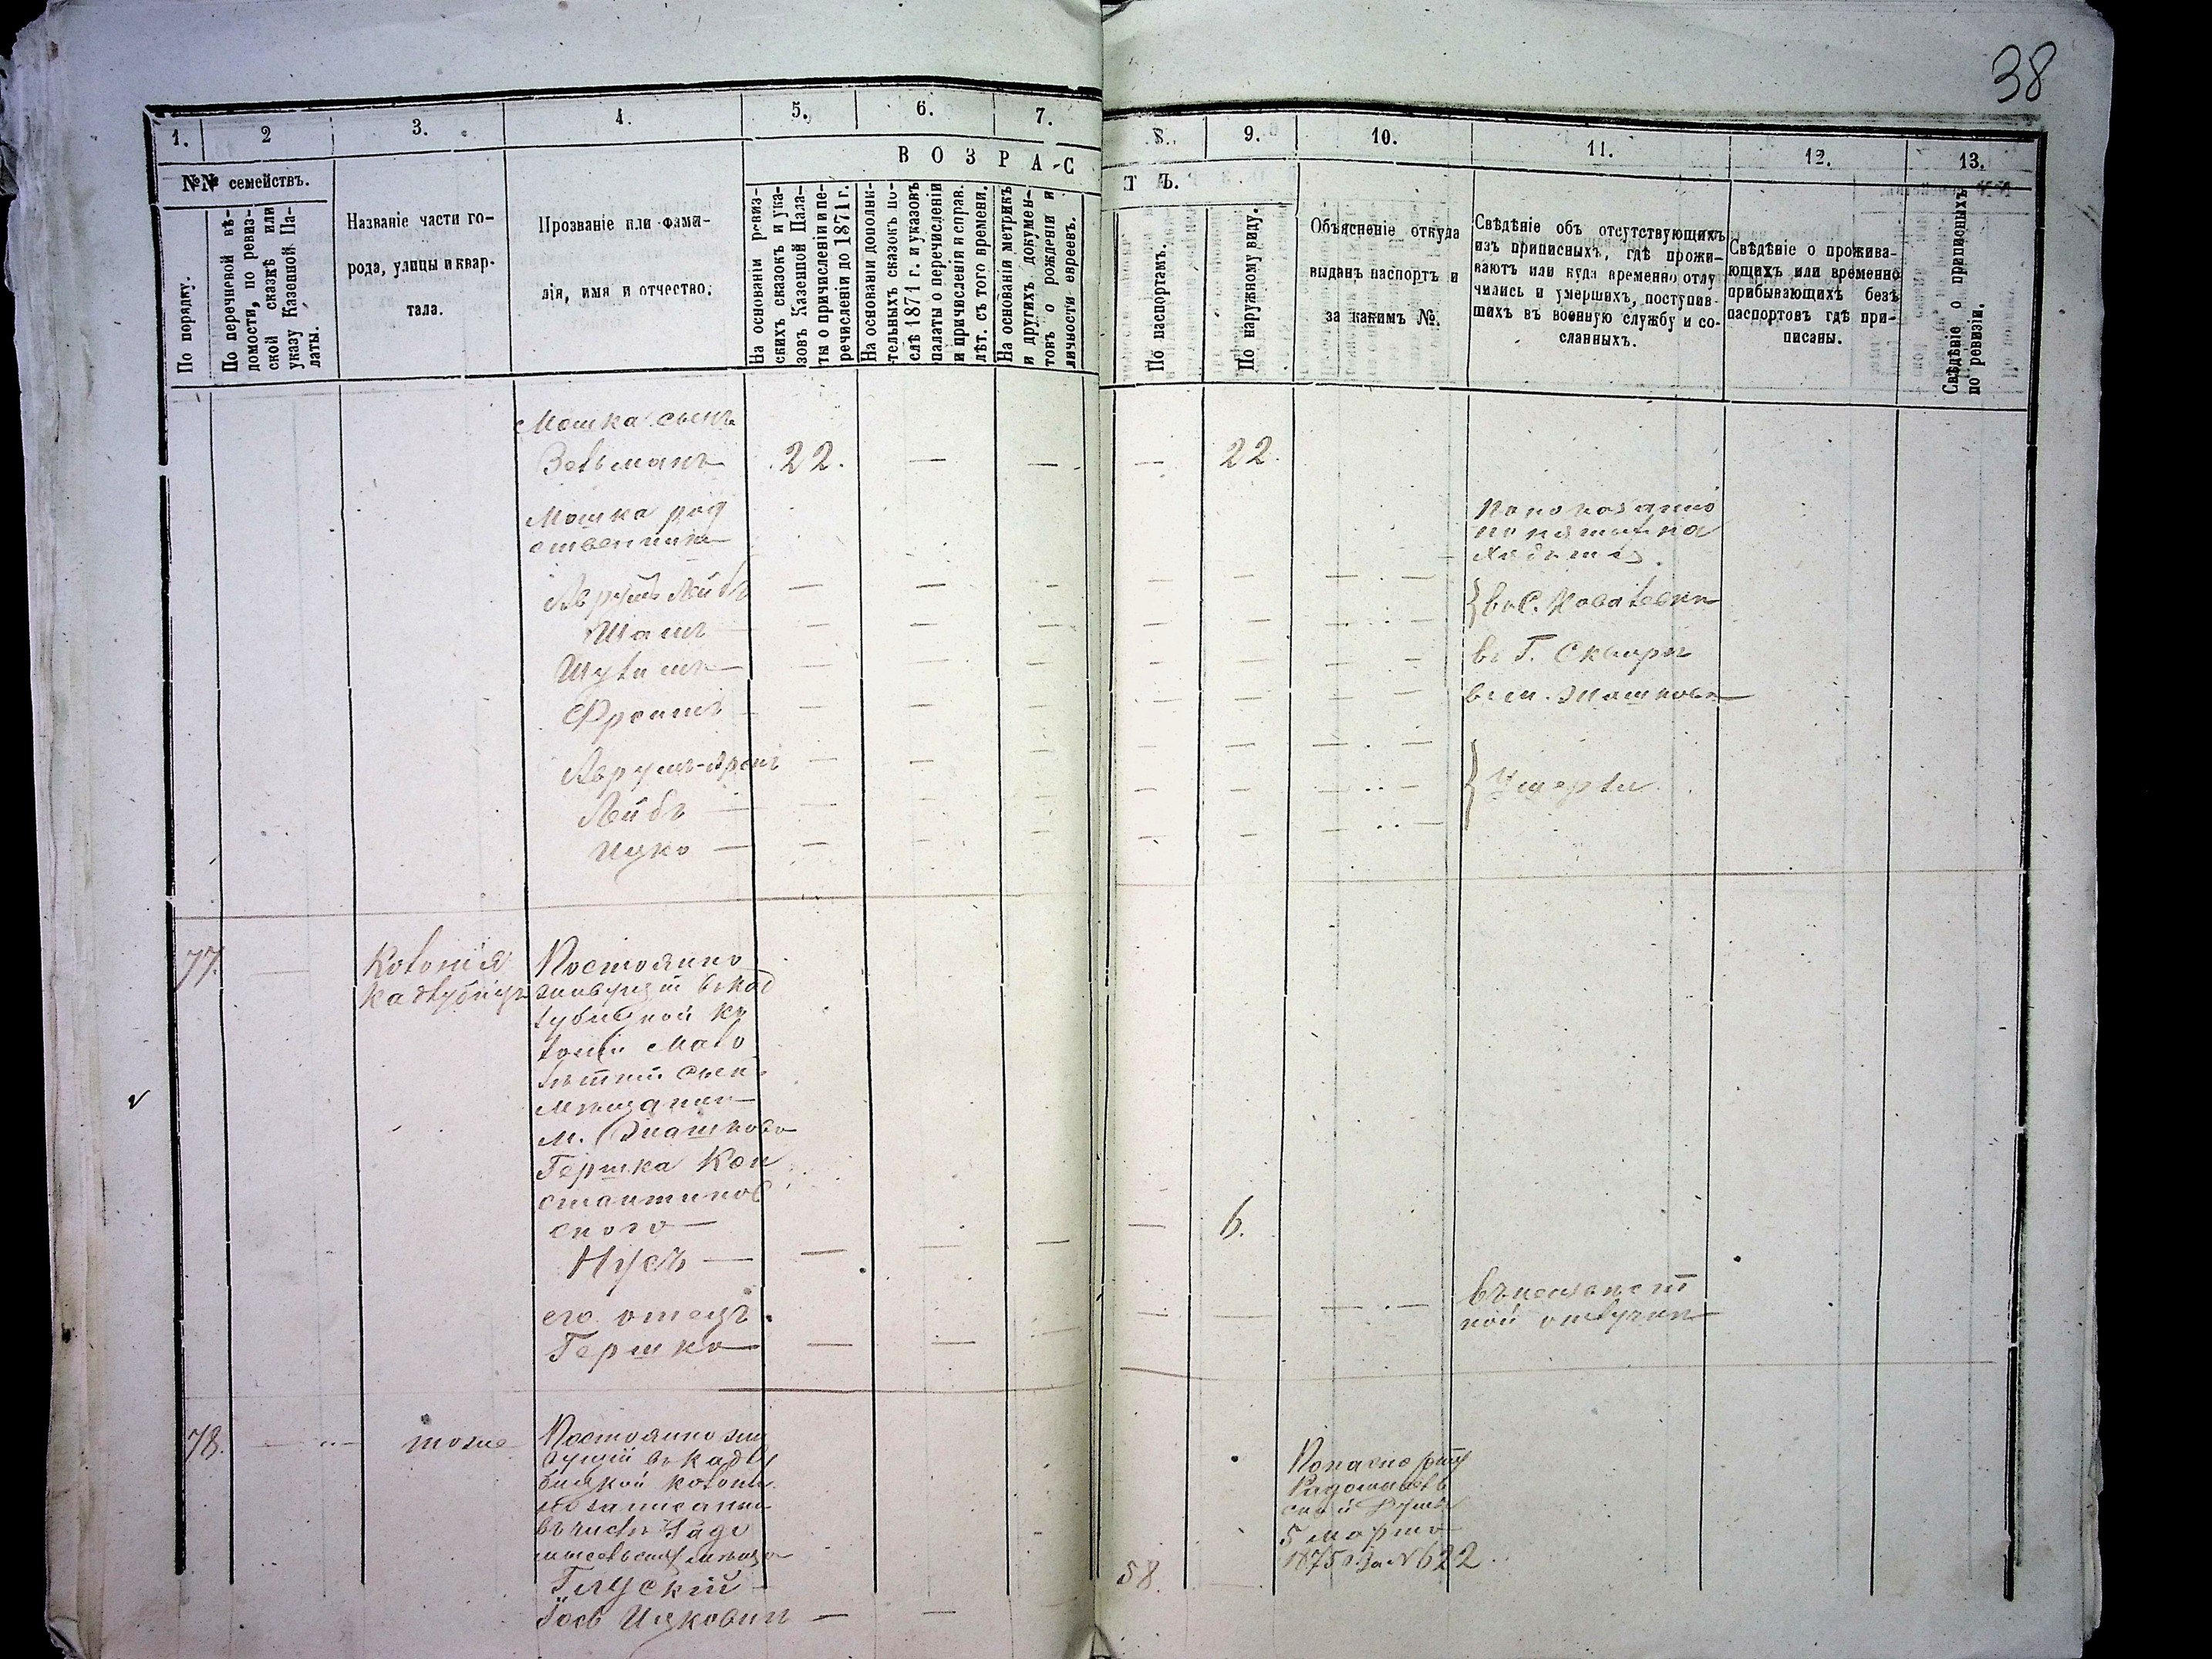 38
1.
2
3.
4.
5.
6.
7.
8.
9.
10.
11.
12.
13.
№№ семействъ.
В О З Р А С
Т Ъ.
По порядку.
По перечневой вѣ-
домости, по ревиз-
ской сказкѣ или
указу Казенной Па-
латы.
Названіе части го-
рода, улицы и квар-
тала.
Прозваніе или фами-
лія, имя и отчество.
На основаніи ревиз-
скихъ сказокъ и ука-
зовъ Казенной Пала-
ты о причисленіи и пе-
речисленіи до 1871 г.
На основаніи дополни-
тельныхъ сказокъ по-
слѣ 1871 г. и указовъ
палаты о перечисленіи
и причисленіи и справ.
лѣт. съ того времени.
На основаніи метрикъ
и другихъ докумен-
товъ о рожденіи и
личности евреевъ.
По паспортамъ.
По наружному виду.
Объясненіе откуда
выданъ паспортъ и
за какимъ №.
Свѣдѣніе объ отсутствующихъ
изъ приписныхъ, гдѣ прожи-
ваютъ или куда временно отлу
чились и умершихъ, поступив-
шихъ въ военную службу и со-
сланныхъ.
Свѣдѣніе о прожива-
ющихъ или временно
прибывающихъ безъ
паспортовъ гдѣ при-
писаны.
Свѣдѣніе о приписныхъ
по ревизіи.
Мошка сынъ
Зельманъ 22. — — — 22
Мошка род
ственники
Аврумъ Лейбъ — — — — — —
Шаіъ — — — — — —
— — — — — —
Фроимъ — — — — — —
— —
Лейбъ — — — — — —
Ицко — — — — — —
въ С.
въ Г. Сквирѣ
въ м. Жашковѣ
Умерли
77. — Колонія
Кадлубица
Постоянно
живущій въ Кад
лубицкой ко
лоніи мало
лѣтній сынъ
мѣщанина
м. Жашкова
Гершка Кон
стантинов
ского —
Нусь — — — — — 6.
его отецъ
Гершко — — — — — —
въ неизвѣст
ной отлучкѣ
78. — тоже
Постоянно жи
вущій въ Кадлу
бицкой колоніи
но записанный
въ числѣ Радо
мысльскихъ мѣщанъ
Іось Ицковичъ — — 58. —
По паспорту
Радомысль
ской Думы
5 марта
1875 г. за № 622